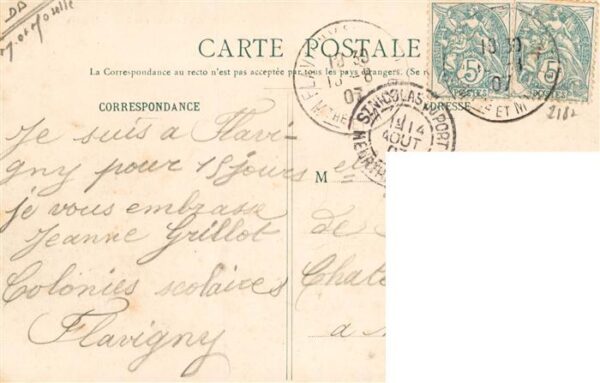 DD
CARTE POSTALE
La Correspondance au recto n'est pas acceptée par tous les pays étrangers. (Se
CORRESPONDANCE
ADRESSE
Je suis à Flavi-
gny pour 15 jours et
je vous embrasse
Jeanne Grillot
Colonies scolaires
Flavigny
M
de
Chate
a
FLAVIGNY
18 30
13 -8
07
ST NICOLAS DU PORT
14
AOUT
MEURTHE
18 30
07
ET M
5
POSTES
5
POSTES
2182